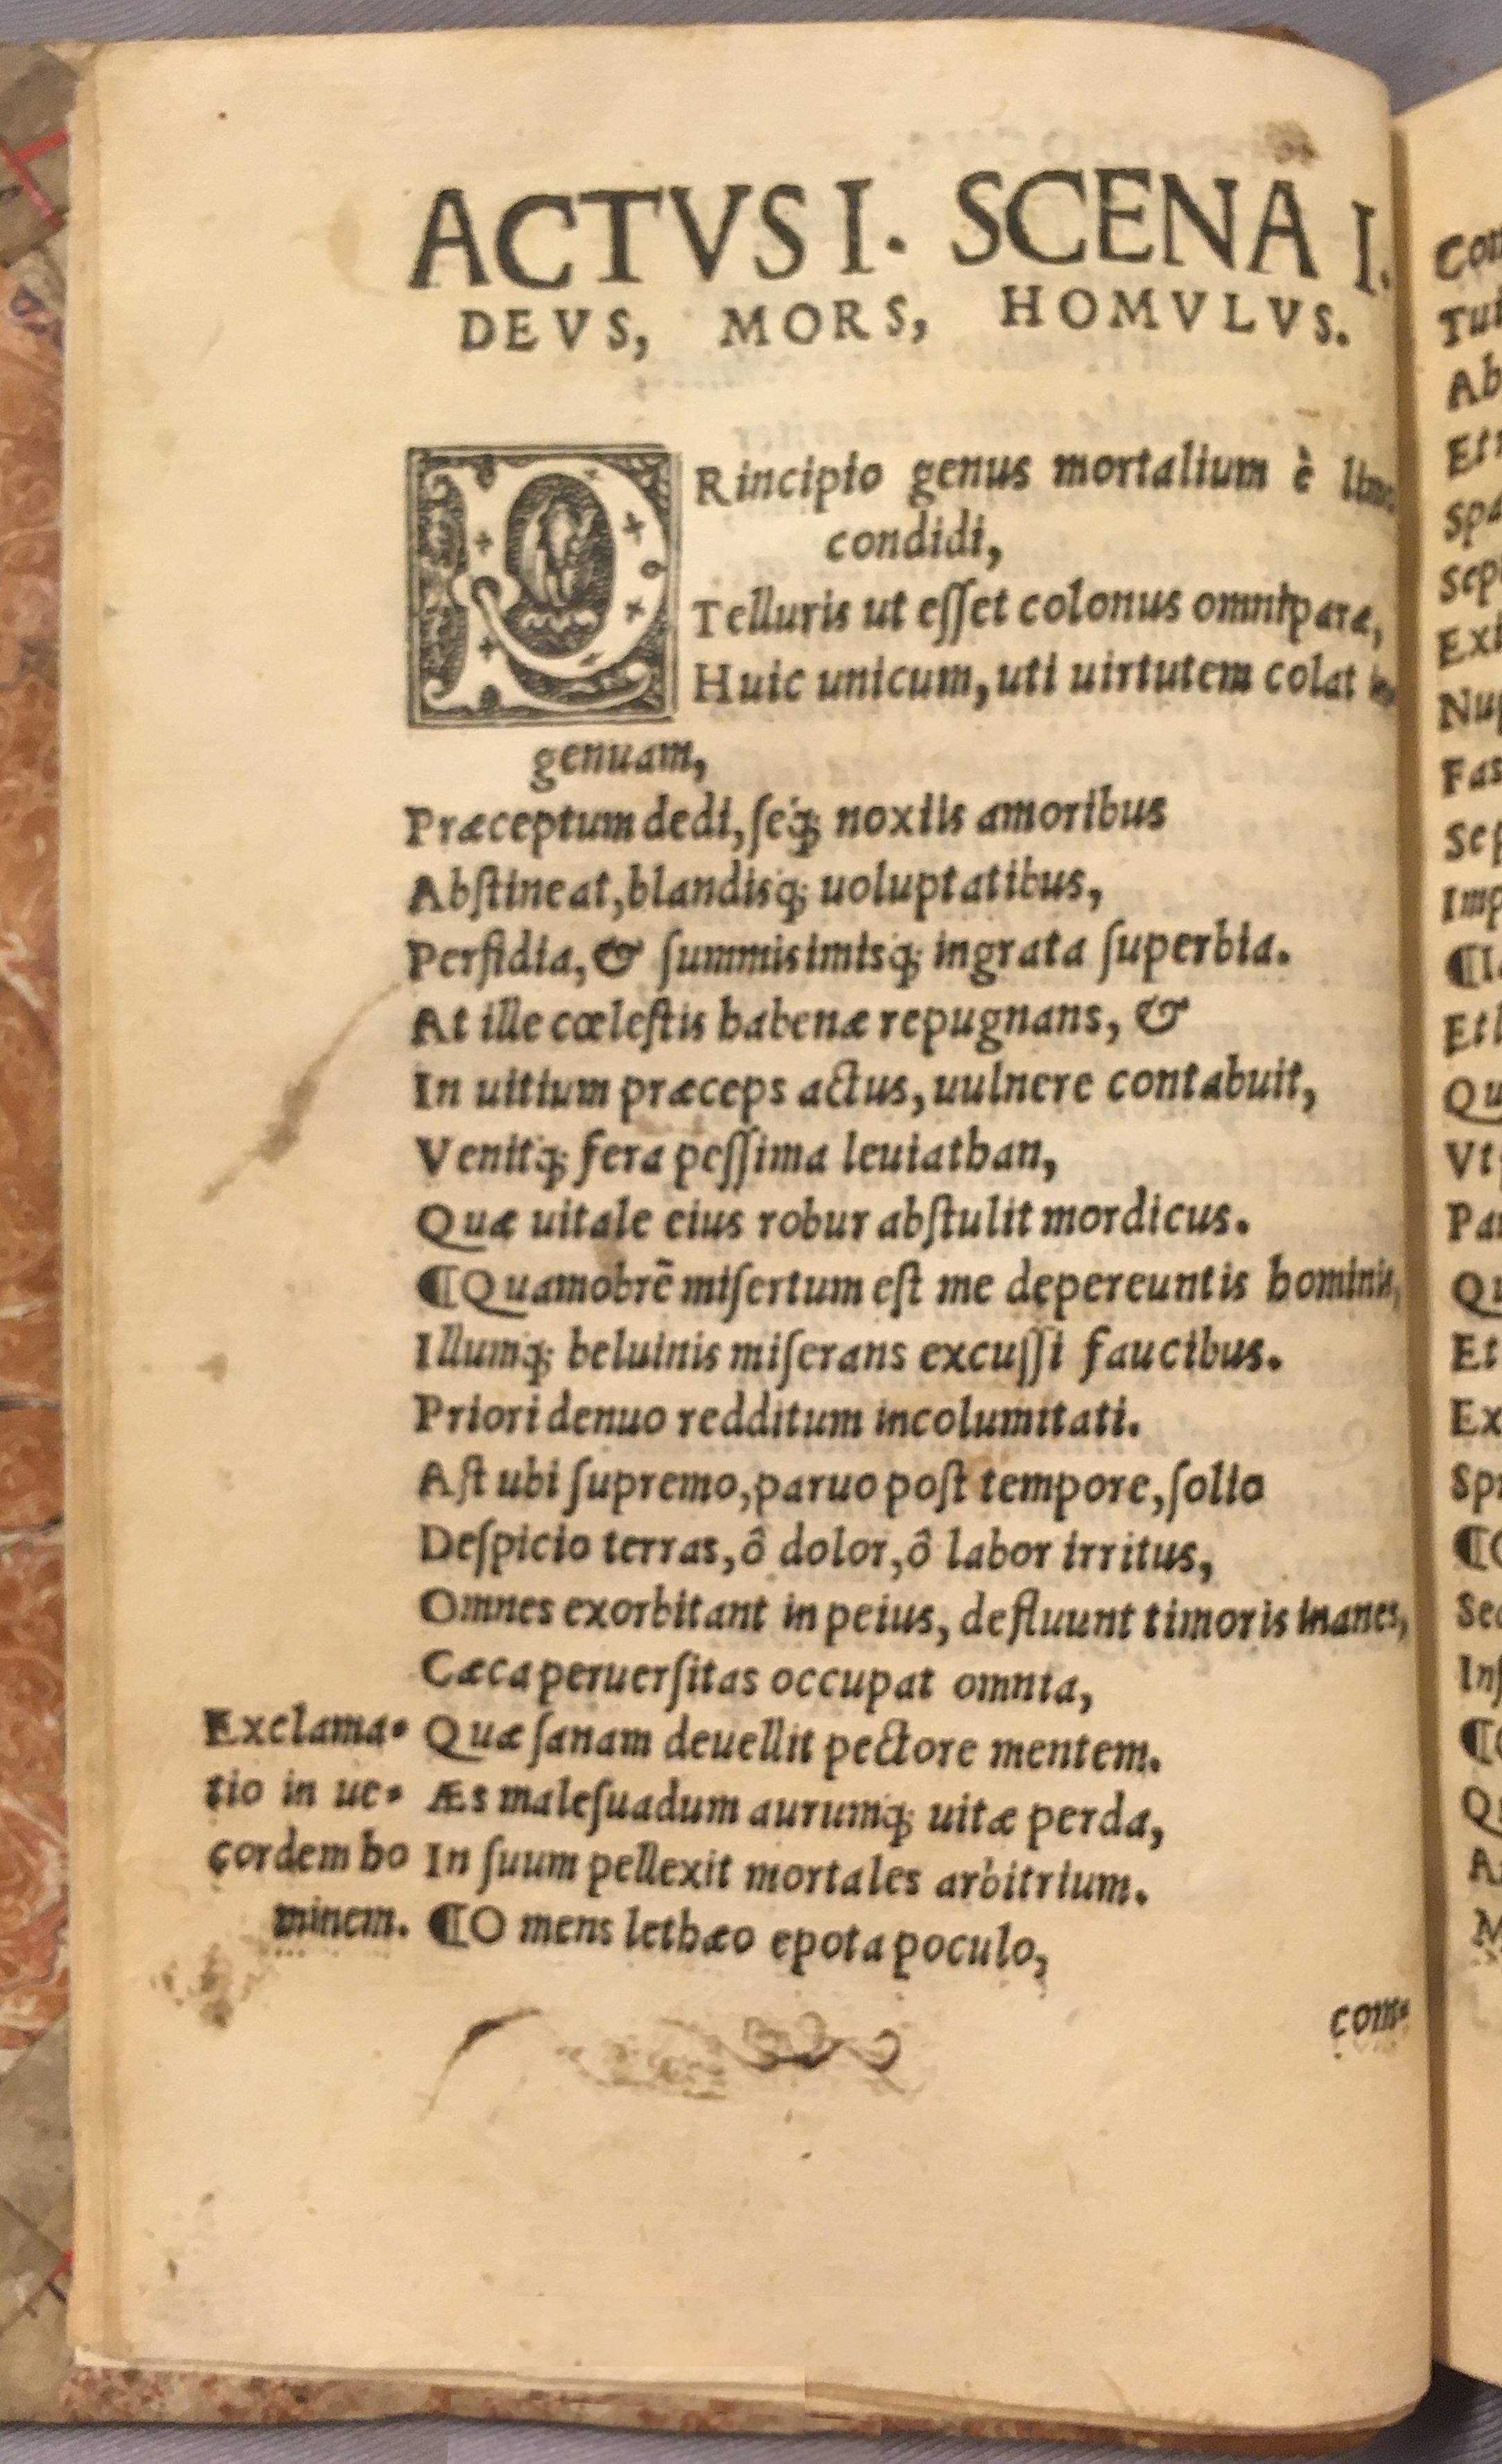 ACTVS I. SCENA I.
DEVS, MORS, HOMVLVS.
PRincipio genus mortalium è limo
condidi,
Telluris ut eſſet colonus omniparæ,
Huic unicum, uti uirtutem colat in
genuam,
Præceptum dedi, ſeq́; noxiis amoribus
Abſtineat, blandisq́; uoluptatibus,
Perfidia, & ſummis imisq́; ingrata ſuperbia.
At ille cœleſtis habenæ repugnans, &
In uitium præceps actus, uulnere contabuit,
Venitq́; fera peſſima leuiathan,
Quæ uitale eius robur abſtulit mordicus.
¶Quamobrē miſertum eſt me depereuntis hominis,
Illumq́; beluinis miſerans excuſſi faucibus.
Priori denuo redditum incolumitati.
Aſt ubi ſupremo, paruo poſt tempore, ſolio
Deſpicio terras, ô dolor, ô labor irritus,
Omnes exorbitant in peius, defluunt timoris inanes,
Cæca peruerſitas occupat omnia,
Quæ ſanam deuellit pectore mentem.
Æs maleſuadum aurumq́; uitæ perda,
In ſuum pellexit mortales arbitrium.
¶O mens lethæo epota poculo,
Exclama-
tio in ue-
cordem ho
minem.
com-
Con
Tut
Ab
Et
Spa
Sep
Exi
Nup
Fas
Sep
Imp
Eti
Qu
Vt
Par
Qu
Et
Ex
Spi
¶O
Sed
Inſ
Qu
A
M